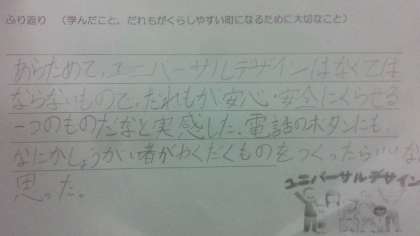 ふり返り （学んだこと、だれもがくらしやすい町になるために大切なこと）
あらためて、ユニバーサルデザインはなくては
ならないもので、だれもが安心・安全にくらせる
一つのものだなと実感した。電話のボタンにも、
なにかしょうがい者がわくだくものをつくったらいいな
思った。
ユニバーサルデザイン